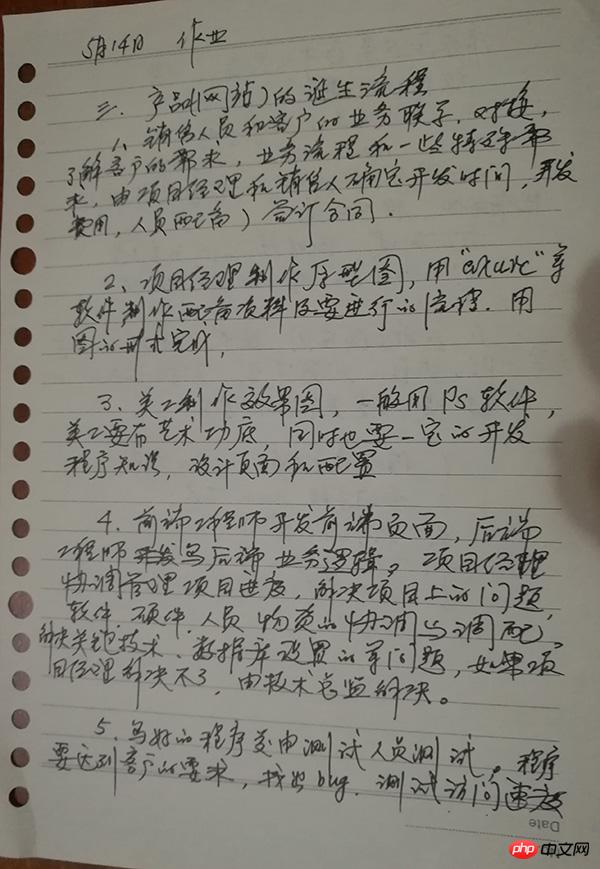 5月14日 作业
三. 产品(网站)的诞生流程
1、销售人员和客户的业务联系,对接,
了解客户的需求,业务流程和一些特殊需
求,由项目经理和销售人确定开发时间,开发
费用,人员配备)签订合同.
2、项目经理制作原型图,用"axure"等
软件制作配备资料及要进行的流程.用
图的形式完成,
3、美工制作效果图,一般用Ps软件,
美工要有艺术功底,同时也要一定的开发
程序知识,设计页面和配置
4.前端工程师开发前端页面,后端
工程师写后端业务逻辑。项目经理
协调管理项目进度,解决项目上的问题
软件.硬件.人员 物资的协调与调配,
解决关键技术.数据库设置的等问题,如果项
目经理解决不了,由技术总监解决。
5.写好的程序交由测试人员测试。程序
要达到客户的要求,找出bug.测试访问速度
Date
php中文网